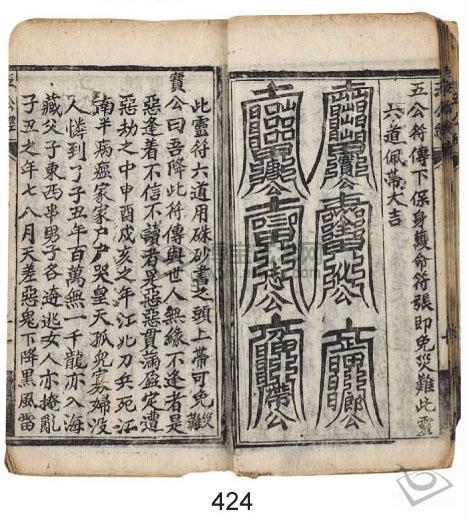 五公符傳下保身護命符張即免災難此靈
六道佩帶大吉
公 公
公 公
郎公 公
此靈符六道用硃砂書之頭上帶可免災難
寶公曰吾降此符傳與世人無緣不逢者是
惡逢着不信不讀者是惡惡貫滿盈定遭
惡劫之中申酉戌亥之年江北刀兵死江
南羊病瘟家家戶戶哭皇天孤兒寡婦沒
人憐到了子丑年百萬無一千龍亦入海
藏父子東西串男子各逃女人亦掩亂
子丑之年七八月天差惡鬼下降黑風雷
五公經
424